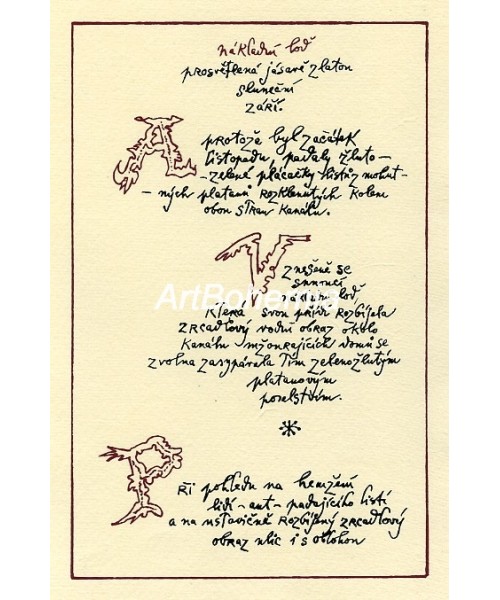 nákladní loď
prosvětlená jásavě zlatou
sluneční
září.
A protože byl začátek
listopadu, padaly žluto-
-zelené plácačky listů z mohut-
-ných platanů rozklenutých kolem
obou stran kanálu.
Vznešeně se
sunoucí
nákladní loď,
která svou přídí rozbíjela
zrcadlový vodní obraz okolo
kanálu mžourajících domů se
zvolna zasypávala tím zelenožlutým
platanovým
poselstvím.
Při pohledu na hemžení
lidí-aut-padajícího listí
a na ustavičně rozbíjený zrcadlový
obraz ulic i s oblohou
ArtBohemia